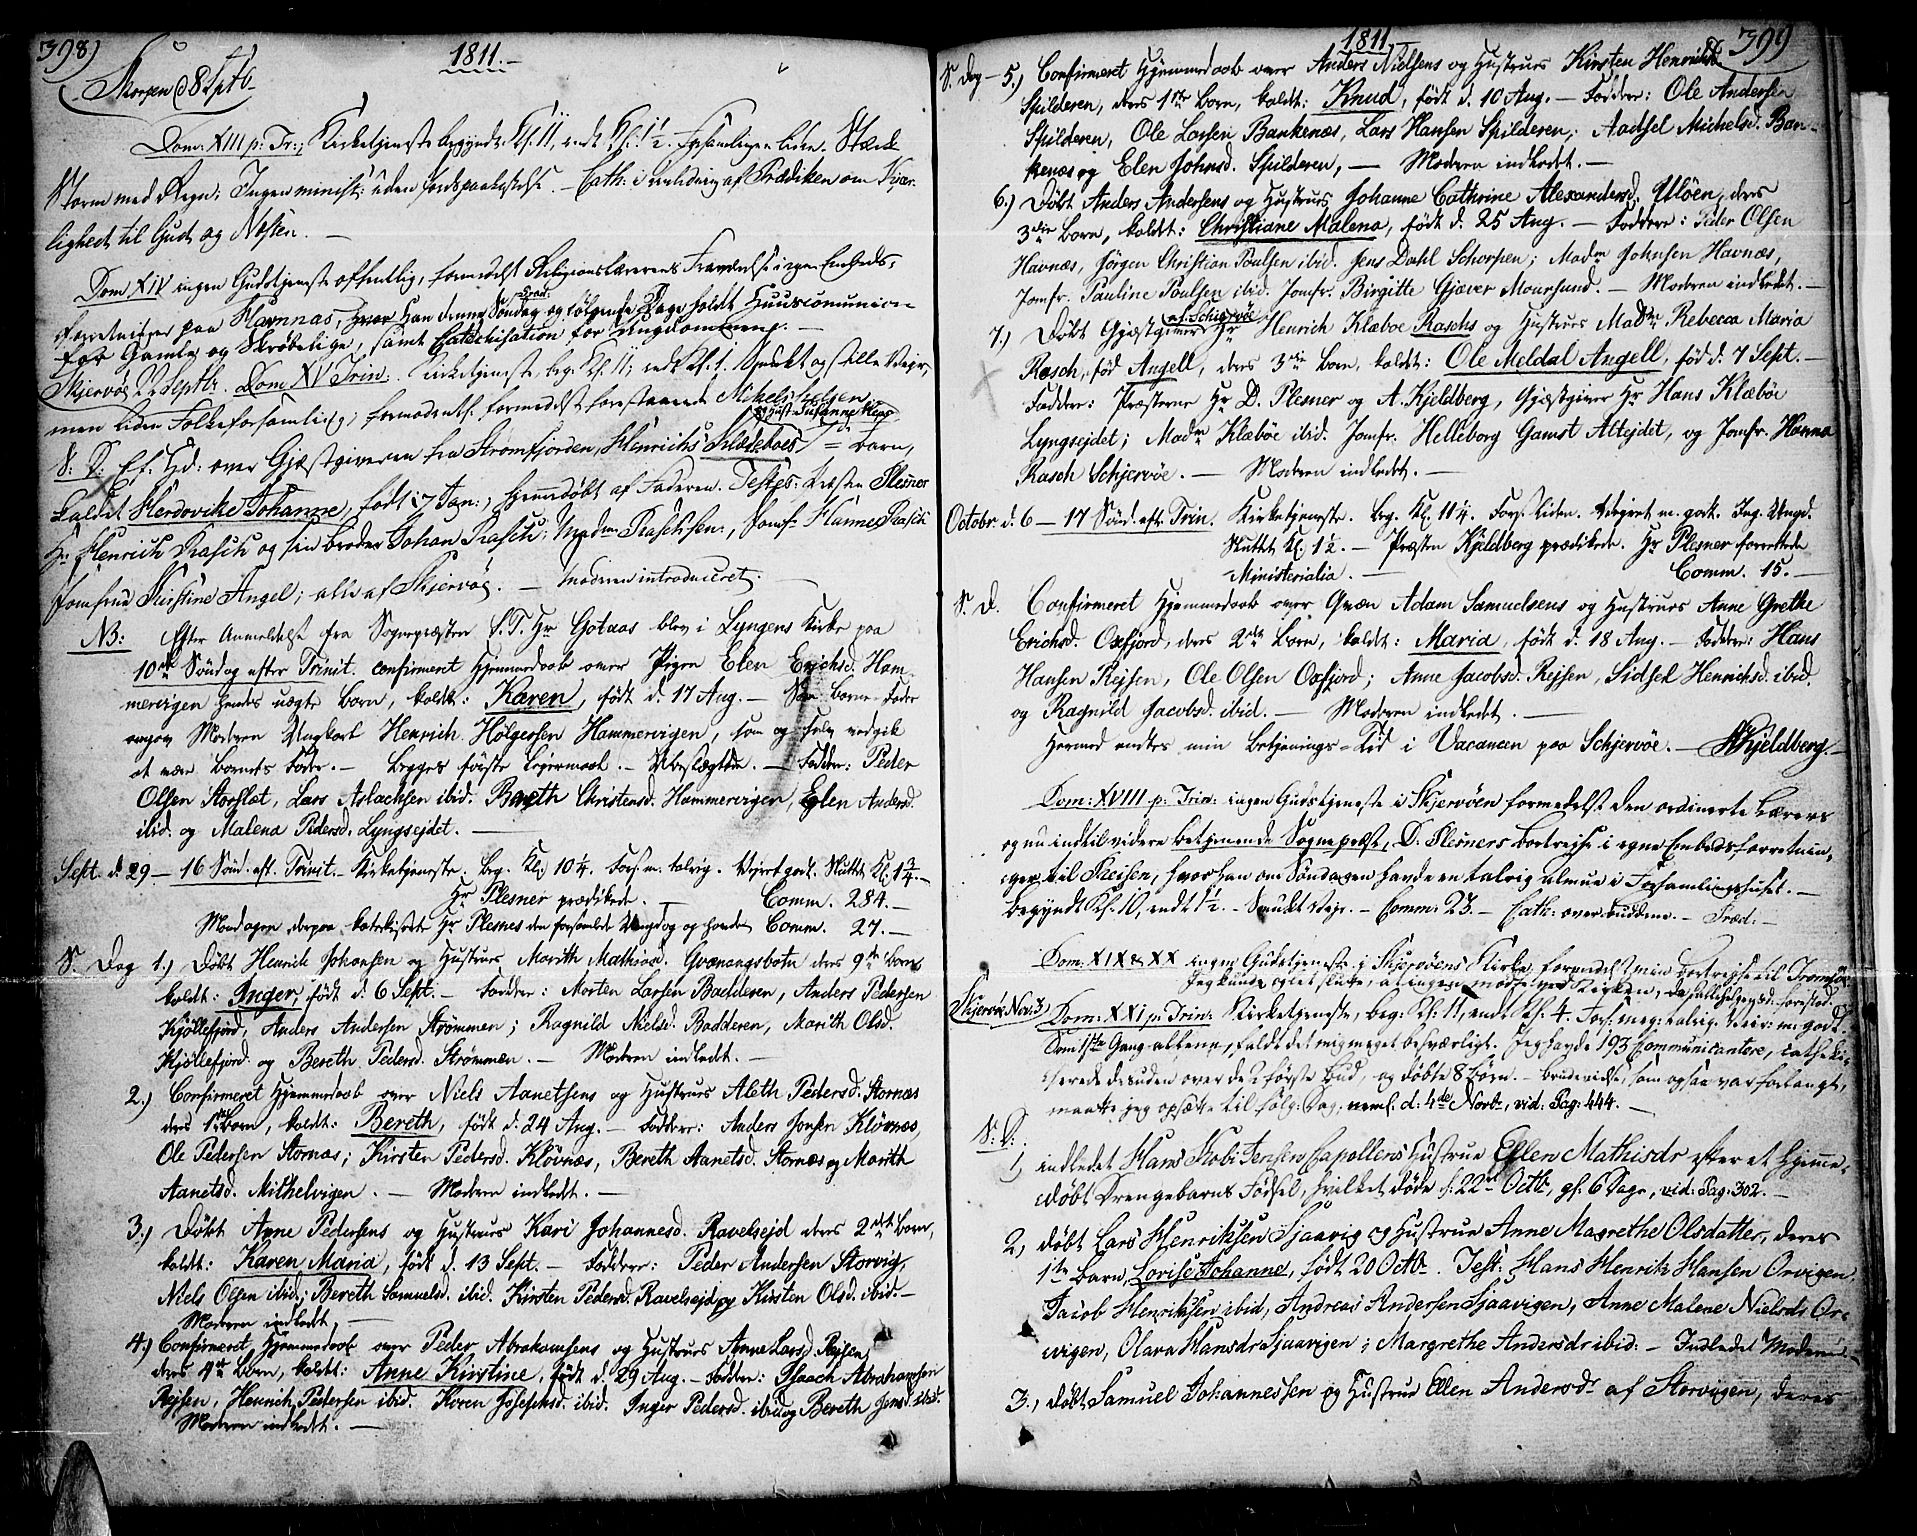 398)
1811.-
Skorpen d 8 Septb
Dom: XIII p: Tr:, Kirketjeneste begyndt Kl: 11, endt Kl: 1½. Forsamlingen liden. Stærk
Storm med Regn; Ingen minist: uden Jordspaakastelse. - Cath: i Anledning af Prædiken om Kjær-
lighed til Gud og Næsten. -
Dom XIV ingen Gudstjeneste offentlig, formedelst Religionslærerens Fraværelse i egne Embeds-
forretninger paa Havnnæs, hvor han denne Søndag og følgende Dage holdt Huuscomunion
for Gamle og Skrøbelige, samt Catechisation for Ungdommen. -
Skjervøe 22 Septbr. Dom XV Trin: Kirketjeneste beg. Kl: 11, endt Kl. 1. Smukt og stille Veir,
men liden Folkeforsamling, formodentl. formedelst forestaaende Mikels Messen,
S: D: Cf: Hd: over Gjæstgiveren fra Strømfjorden, Henrichs Klæboes Barn,
kaldet Herdovike Johanne, født 17 Jan:, hjemmedøbt af Faderen. Testes: Præsten Plesner
Hr Henrich Rasch og sin broder Johan Rasch; Madm Raschsen., Jomfr Hanne Rasch
Jomfrue Kirstine Angel; alle af Skjervøe. - Moderen introduceret. -
NB: Efter Anmeldelse fra Sognepræsten S. T. Hr Gotaas blev i Lyngens Kirke paa
10de Søndag efter Trinit. confirmeret Hjemmedaab over Pigen Elen Erichsd. Ham-
mervigen hendes uægte Barn, kaldt: Karen, født d. 17 Aug. - Som Barne-Fader
angav Moderen Ungkarl Henrich Holgersen Hammervigen, som og selv vedgik
at være Barnets Fader. - Begges første Leiermaal. - Ubeslægtede. - Faddere: Peder
Olsen Storslet, Lars Aslachsen ibid. Bereth Christensd. Hammervigen, Elen Andersd.
ibid. og Malena Pedersd. Lyngsejdet. -
Sept. d. 29 - 16 Sönd. eft. Trinit. - Kirketjeneste. Beg. Kl: 10¼. Fors. m. talrig. Vejret godt. Sluttet Kl: 1¾. -
Hr Plesner prædikede. - Comm. 284. -
Mandagen derpaa katekiserede Hr Plesner den forsamlede Ungdog og havde Comm. 27. -
S. Dag 1.) Døbt Henrik Johansen og Hustrues Marith Mathisd. Qvænangsbotn deres 9de Barn
kaldt: Inger, født d. 6 Sept. - Faddere: Morten Larsen Badderen, Anders Pedersen
Kjöllefjord, Anders Andersen Strömmen; Ragnild Nielsd. Badderen, Marith Olsd.
Kjöllefjord. og Bereth Pedersd. Strömmen. - Moderen indledt. -
2.) Confirmeret Hjemmedaab over Niels Aanetsens og Hustrues Aleth Pedersd. Stornæs
deres 1ste Barn, kaldt: Bereth, født d. 24 Aug. - Faddere: Anders Jonsen Klövnæs,
Ole Pedersen Stornæs; Kirsten Pedersd. Klövnæs, Bereth Aanetsd. Stornæs og Marith
Aanetsd. Mithelvigen. - Moderen indledt. -
3.) Døbt Arne Pedersens og Hustrues Kari Johannesd. Ravelsejd deres 2det Barn,
kaldt: Karen Maria, født d. 13 Sept. - Faddere: Peder Andersen Storvig,
Niels Olsen ibid.; Bereth Samuelsd. ibid. Kirsten Pedersd. Ravelsejd og Kirsten Olsd. ibid. -
Moderen indledt. -
4.) Confirmeret Hjemmedaab over Peder Abrahamsens og Hustrues Anne Larsd. Rejsen,
deres 4de Barn, kaldt: Anne Kirstine, født d. 29 Aug. - Faddere: Isaach Abrahamsen
Rejsen, Henrich Pedersen ibid. Karen Josephsd. ibid. Inger Pedersd. ibid og Bereth Jensd. ibid.
Moderen indledt. -
1811
399
S. Dag - 5.) Confirmeret Hjemmedaab over Anders Nielsens og Hustrues Kirsten Henrichsd.
Spilderen, deres 1ste Barn, kaldt: Knud, født d. 10 Aug. - Faddere: Ole Andersen
Spilderen, Ole Larsen Bankenæs, Lars Hansen Spilderen; Aadsel Michelsd. Ban-
kenæs og Elen Johnsd. Spilderen, - Moderen indledet. -
6.) Döbt Anders Andersens og Hustrues Johanne Cathrine Alexandersd. Ulöen, deres
3die Barn, kaldt: Christiane Malena, født d. 25 Aug. - Faddere: Peder Olsen
Havnæs, Jörgen Christian Poulsen ibid. Jens Dahl Schorpen; Madm Johnsen Havnæs,
Jomfr. Pauline Poulsen ibid. Jomfr. Birgitte Gjæver Moursund. - Moderen indledet. -
7.) Döbt Gjæstgiver af Schjervöe Hr Henrich Klæboe Raschs og Hustrues Madme Rebecca Maria
Rasch, fød Angell, deres 3die Barn, kaldt: Ole Meldal Angell, fød d. 7 Sept. -
Faddere: Præsterne Hr D. Plesner og A. Kjeldberg, Gjæstgiver Hr Hans Klæböe
Lyngsejdet; Madm Klæböe ibid. Jomfr. Helleborg Gamst Altejdet, og Jomfr. Hanna
Rasch Schjervöe. - Moderen indledet. -
Octobr d. 6 - 17 Sönd. eft. Trin. Kirketjeneste. Beg. Kl. 11¼. Fors. liden. Vejret m. godt. Ing. Ungd.
Sluttet Kl: 1½. - Præsten Kjeldberg prædikede. Hr Plesner forrettede
Ministerialia. - Comm. 15. -
S. D. Confirmeret Hjemmedaab over Qvæn Adam Samuelsens og Hustrues Anne Grethe
Erichsd. Oxfjord, deres 2det Barn, kaldt: Maria, født d. 18 Aug. - Faddere: Hans
Hansen Rejsen, Ole Olsen Oxfjord; Anne Jacobsd. Rejsen, Sidsel Henrichsd. ibid.
og Ragnild Jacobsd. ibid. - Moderen indledet. -
Hermed endtes min Betjenings-Tid i Vacancen paa Schjervöe. - AKjeldberg. -
Dom: XVIII p: Trin: ingen Gudstjeneste i Skjervøen formedelst den ordinerte Lærers
og nu indtil videre betjenende Sognepræst, D. Plesners Bortreise i egne Embedsforretnin-
ger til Reisen, hvor han om Søndagen havde en talrig Almue i Forsamlingshuset. -
begyndt Kl. 10, endt 1½. - Smukt Vejr. - Comm: 23. - Cath: over buddene. - Præd. -
Dom: XIX & XX ingen Gudstjeneste i Skjervøens Kirke formedelst min Bortrejse til Tromsøe
Skjervøe Nov: 3) Dom: XXI p: Trin: Kirketjeneste, beg: Kl: 11, endt Kl. 4. Fors. meg: talrig. Veir: m: godt.
Som 1ste Gang alene, faldt det mig meget besværligt. Jeg havde 193 Communicantere, catheki-
serede desuden over de 2 første Bud, og døbte 8 Børn. - Brudevielse, som ogsaa var forlangt,
maatte jeg opsætte til følg: Dag, neml. d: 4de Novbr, vid: Pag: 444. -
S: D:
1) indledet Hans Jensen Capollens Hustrue Ellen Mathisdr efter et hjemme-
døbt Drengebarns Fødsel, hvilket døde d: 22nd Octb, gl: 6 Dage, vid: Pag: 302. -
2) døbt Lars Henriksen Sjaavig og Hustrue Anne Magrethe Olsdatter, deres
1ste Barn Lovise Johanne, født 20 Octbr. Test: Hans Henrik Hansen Orvigen
Jacob Henriksen ibid, Andreas Andersen Sjaavigen, Anne Malene Nielsdr Or-
vigen, Olava Hansdr Sjaavigen; Margrethe Andersdr ibid: - Indledet Moderen -
3.) døbt Samuel Johannessen og Hustrue Ellen Andersdr af Storvigen, deres